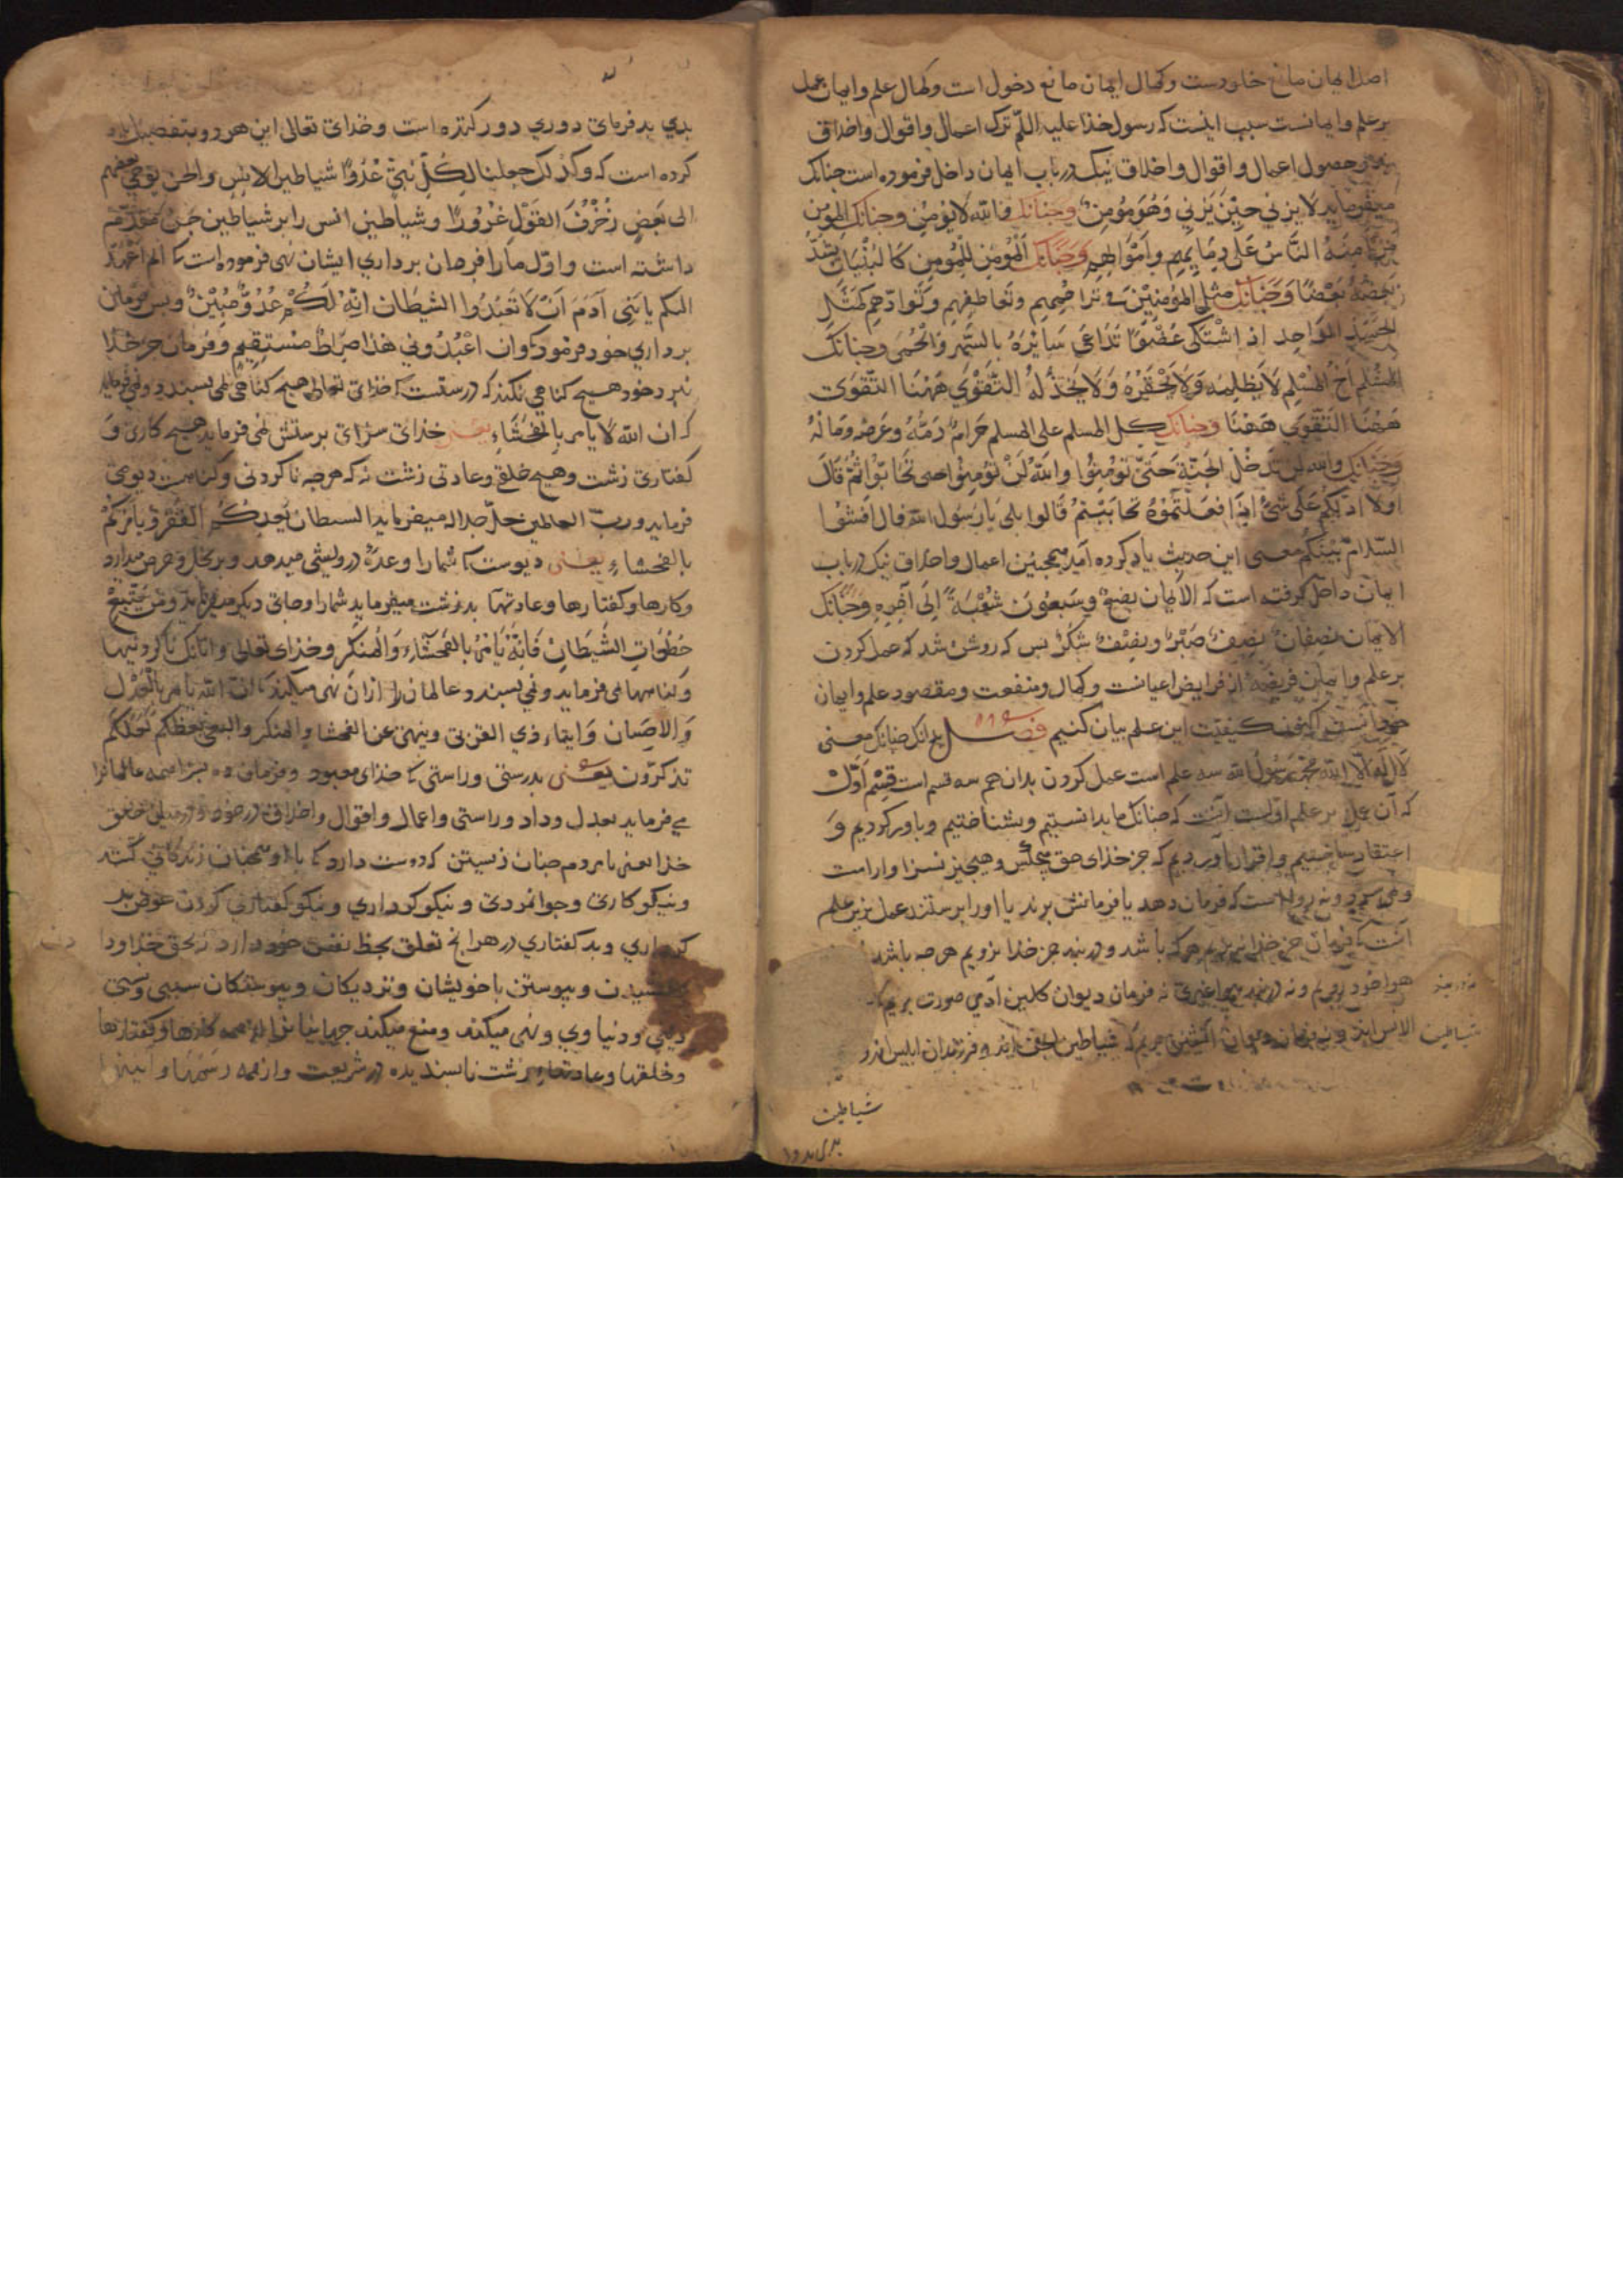 اصل ایمان مانع خلودست وکمال ایمان مانع دخول است وکمال علم وایمان عمل
برعلم وایمانست سبب اینست که رسول خذا علیه اللم ترک اعمال واقوال واخلاق
وحصول اعمال واقوال واخلاق نیک در باب ایمان داخل فرموده است چنانک
میفرماید لا یزني حِیْنَ یَزني وَهُوَ مُومِنٌ وچنانک والله لا یومِنُ وچنانک المومن
مَنْ اَمِنَهُ النَّاسُ عَلَی دِمَایِهِم وَاَمْوَالِهِم وَچنَانک اَلْمُومِنُ لِلْمُومِنِ کَالبُنْیَانِ یَشُدُّ
بَعْضُهُ بَعْضًا وَچنَانک مثل المؤمنِیْنَ فی تراحُمِهِم وتَعَاطُفِهِم وَتَوادّهِم کَمَثَلِ
الجَسَدِ الوَاحِدِ اذ اشْتَکَی عُضْوًا تَدَاعَی سَایْرُهُ بالسَّهَرِ وَالْحُمَی وچنانک
المُسْلِم اَخُ المُسْلِم لاَیَظْلِمُه وَلاَیَحْقِرُهُ وَلاَیَخْذُلهُ التَّقْوَي هٰهُنَا التَّقْوَی
هٰهُنَا التَّقْوَی هَهُنَا وچنانک کل المسلم علی المسلم حَرامٌ دَمُهُ وعِرْضُه وَمَالُهُ
وَچنَانک والله لن تَدخُلَ الجَنّةَ حَتَّی تُوْمِنُوا واللهِ لَنْ تُوْمِنُوا حتی تَحَابّوْا ثُمَّ قَالَ
اولا ادلّکم عَلَی شَیءٍ اِذَا فَعَلْتُمُوْهُ تحَابَبْتُمْ قَالوا بلی یَارسُوْل الله قال اَفشُوا
السّلامَ بَیْنَکُم معنی این حدیث یاد کرده آمد همچنین اعمال واخلاق نیک در باب
ایمان داخل کرفته است که الایمان بضعٌ وسَبعُونَ شُعْبَةً اِلَی آخِرِه وَچنَانک
الایمَان نِصْفان نِصْفٌ صَبْرٌ ونِصْفٌ شُکْرٌ بس که روشن شد که عمل کردن
برعلم وایمان فریضه از فرایض اعیانست وکمال ومنفعت ومقصود علم وایمان
کیفیّت این علم بیان کنیم فصل بدانک چنانک معنی
لَا اِلَهَ اِلَّا الله محمّد رَسُوْلُ الله سه علم است عمل کردن بدان هم سه قسم است قِسْم اَوَّل
که آن عمل بر علم اوّلست آنست که چنانک ما بدانستیم وبشناختیم وباور کردیم وَ
اعتقاد ساختیم واقرار آوردیم که جز خذای حق هیچکس وهیچیز نسزاوارست
ونه روا است که فرمان دهد یا فرمانش برند یا اورا برستند عمل برین علم
آنست که فرمان جز خذا نبریم هرکه باشد ودر بند جز خذا نرویم هرچه باشد
هوا خود نه فرمان دیوان کلین آدمي صورت بریم که
شیاطین
الانس اند
شیاطین اند وفرزندان ابلیس اند
شیاطین
بدي بد فرمای دوري دور کننده است وخذای تعالی این هر دو بتفصیل
کرده است که وکذلک جعلنا لکُلّ نَبيٍّ عُدُوًّا شیاطین الانس والجن یوحی بعضهم
الی بَعَضٍ زُخْرُفَ القَوْلِ غُرُورًا وشیاطین انس را بر شیاطین جن مقدّم
داشته است واوّل مارا فرمان برداري ایشان نهی فرموده است که الم اَعْهَدْ
الیکم یا بَنِی آدَمَ اَنْ لَا تَعْبُدُوا الشیطَان اِنَّهُ لَکُمْ عُدُوٌّ مُبِیْنٌ وبس فرمان
برداري خود فرمود که وان اعْبُدُوني هٰذا صِرَاطٌ مُسْتَقِیْمٌ وَفرمان جز خذا
نبرد خود هیچ کناهی نکند که درستست که خذای تعالی هیچ کناهی نمی بسندد ونمی فرماید
که ان الله لا یامر بالفَحْشَاءِ یعنی خذای سزای برستش نمی فرماید هیچ کاری وَ
کفتاری زشت وهیچ خلقی وعادتی زشت نه که هرچه ناکردنی وکناهست دیوی
فرماید وربّ العالمین جلّ جلاله میفرماید الشیطان یَعِدُکُم الفَقْرَ ویَامُرُکُمْ
بالفحشاءِ یعنی دیوست که شمارا وعدهٔ درویشی میدهد وبر بخل وحرص میدارد
وکارها وکفتارها وعادتهٰا بد زشت میفرماید شمارا وجای دیکر میفرماید وَمَنْ یَتَّبِعْ
خُطُوَاتِ الشَّیْطَانِ فَاِنَّهُ یَامُرُ بالفَحْشَاءِ وَالْمُنکَر وخذای تعالی وآنانک ناکردنیها
وکناهها می فرماید ونمی بسندد عالمان را ازان نهی میکند که ان الله یامر بالْعَدْلِ
وَالاِحْسَان وَایتاءِ ذي القربی وینهی عن الفحشا والمنکر والبغي یَعِظکُم لَعَلَّکُم
تذکرّون یعنی بدرستی وراستی که خذای معبود وفرمان ده بسزا همه عالمانرا
مي فرماید بعدل وداد وراستی واعمال واقوال واخلاق
خذا یعنی با مردم چنان زیستن که دوست دارد که با او همچنان زندکانی کنند
ونیکو کاری وجوانمردی ونیکو کرداري ونیکو کفتاري کردن عوض بد
کرداري وبد کفتاري در هرانچ تعلق بحظ نفس خود دارد نه بحق خذا ودا
وبیوستن با خویشان ونزدیکان وبیوستکان سببی ونسبی
دیني ودنیاوي ونهی میکند ومنع میکند جهانیانرا از همه کارها وکفتارها
وخلقها وعادتهاءِ زشت نابسندیده در شریعت واز همه رَسْمهَا وآیینها